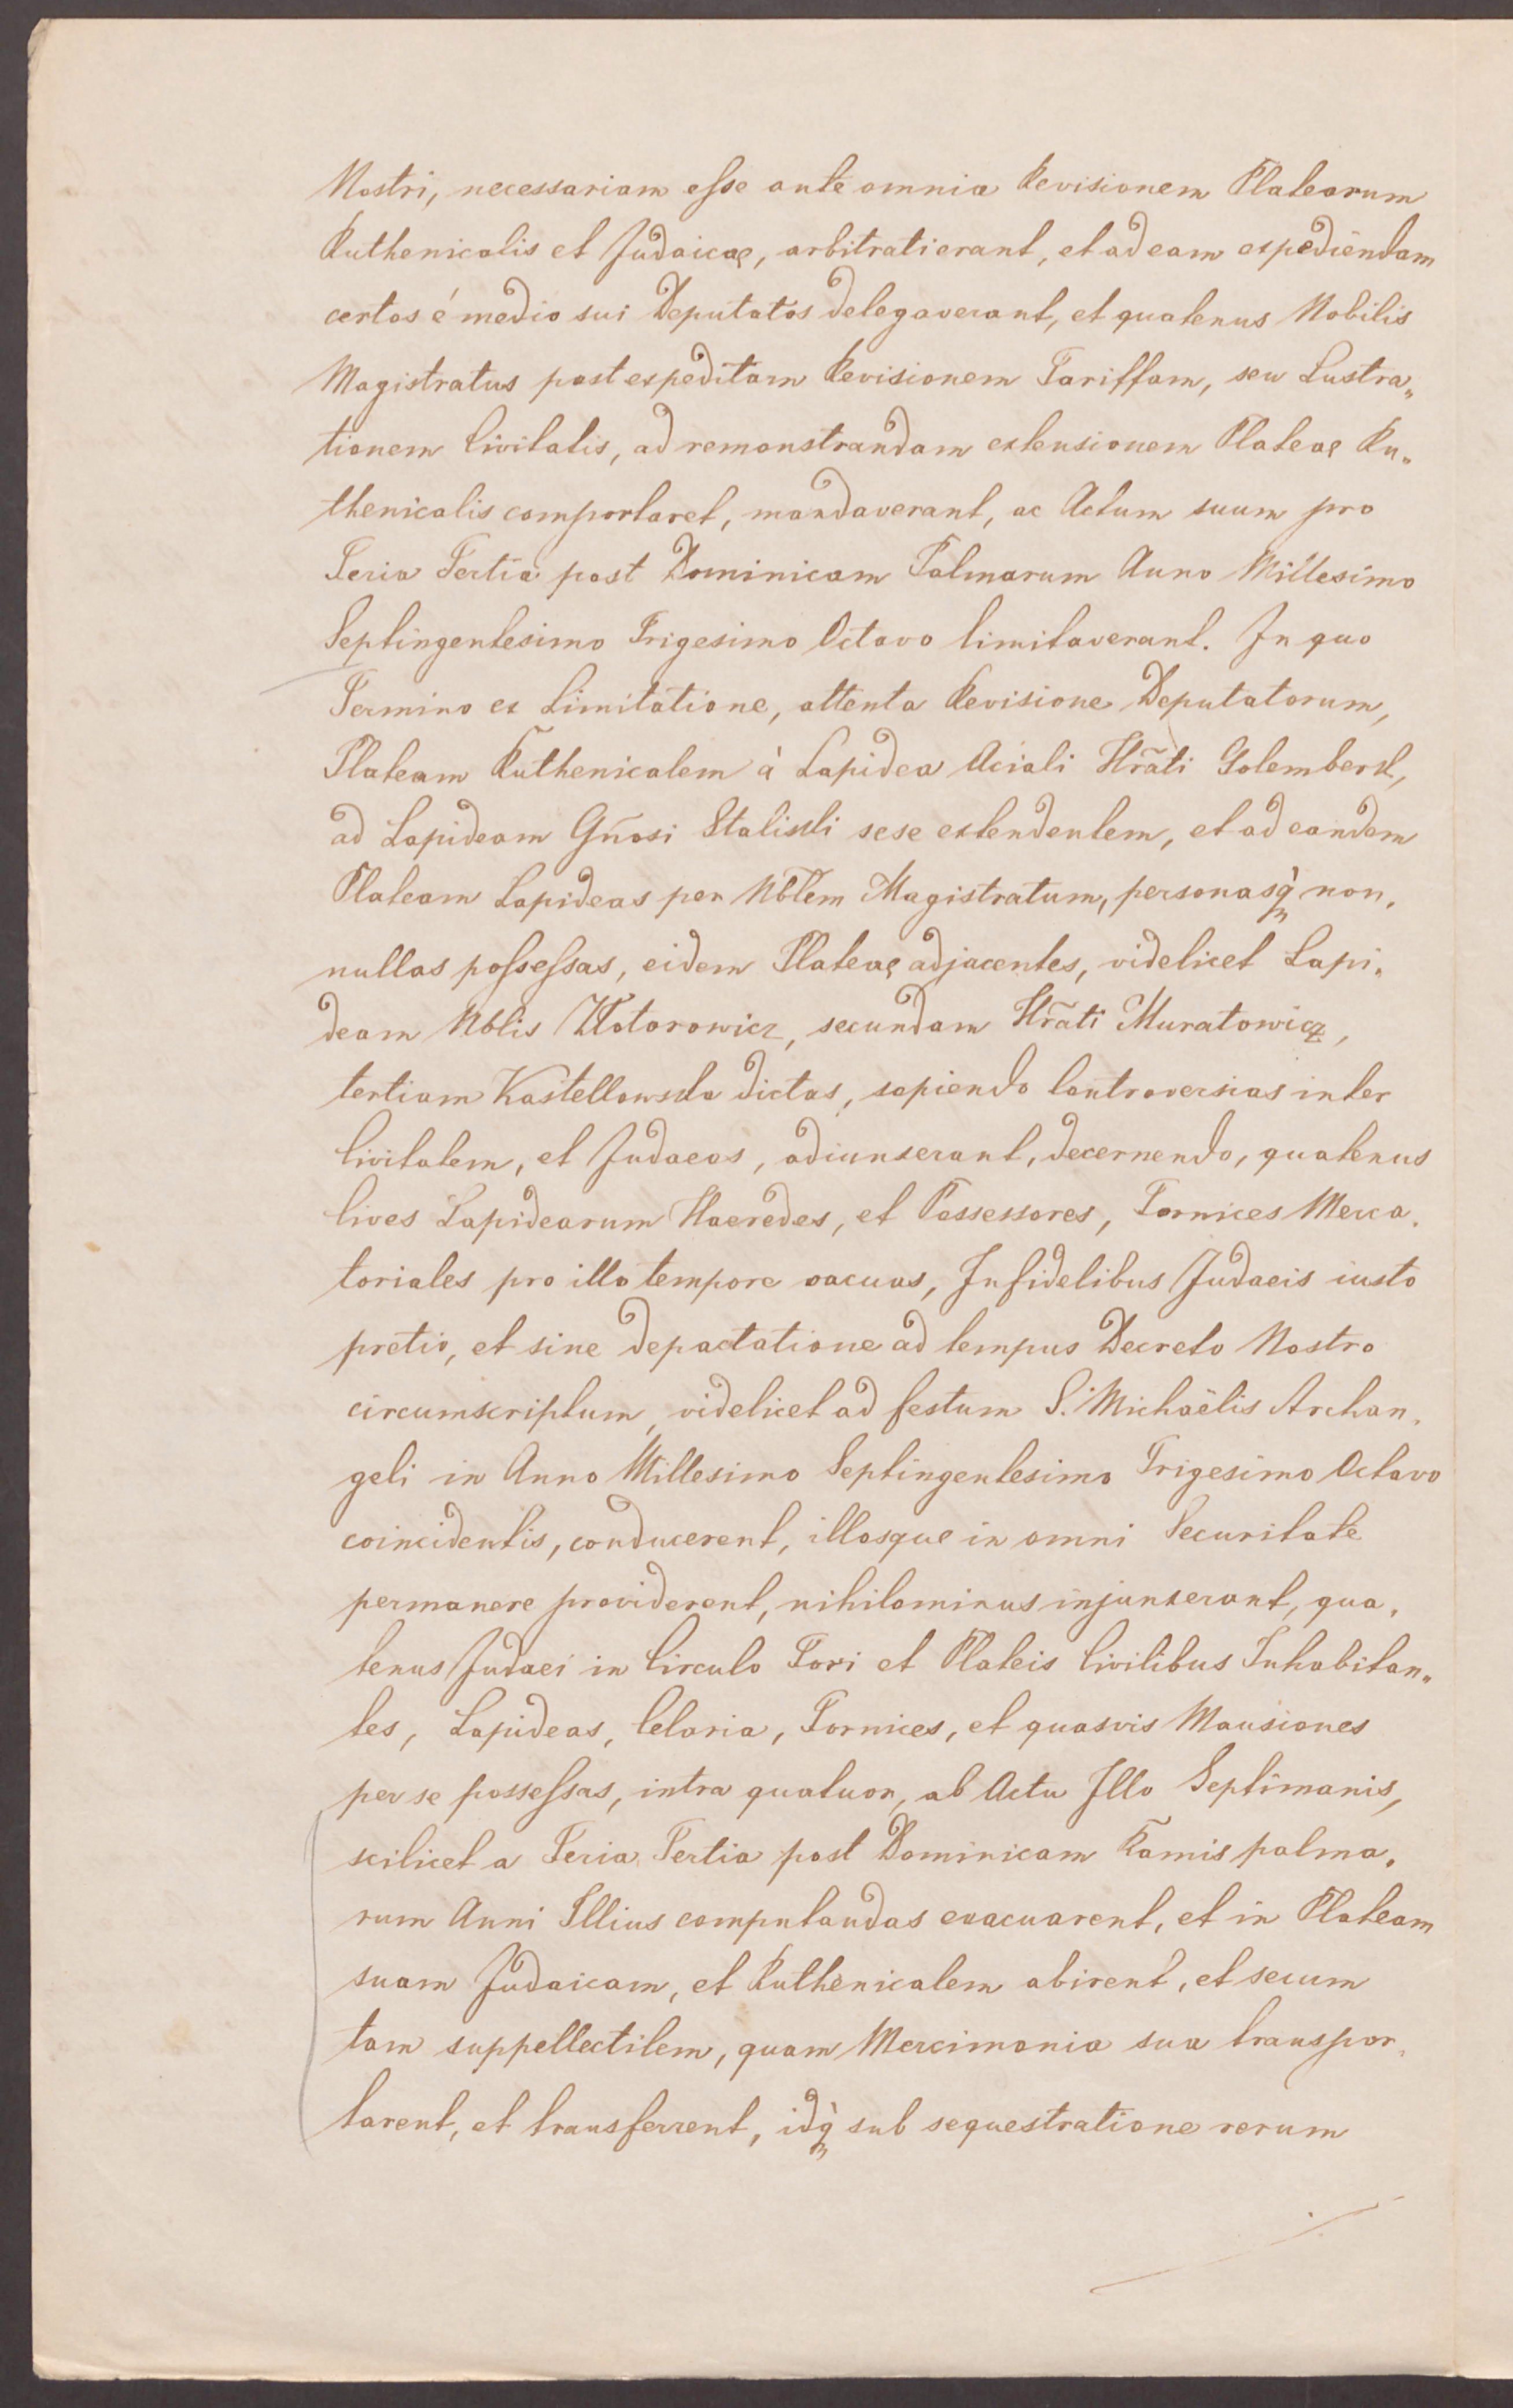 Nostri, necessariam esse ante omnia Revisionem Platearum
Ruthenicalis et Judaicae, arbitrati erant, et ad eam expediendam
certos é medio sui Deputatos delegaverant, et quatenus Nobilis
Magistratus post expeditam Revisionem Tariffam, seu Lustra„
tionem Civitatis, ad remonstrandam extensionem Plateae Ru„
thenicalis comportaret, mandaverant, ac Actum suum pro
Feria Tertia post Dominicam Palmarum Anno Millesimo
Septingentesimo Trigesimo Octavo limitaverant. In quo
Termino ex Limitatione, attenta Revisione Deputatorum,
Plateam Ruthenicalem à Lapidea Aciali Hrãti Golembersk,
ad Lapideam Gñosi Staliski sese extendentem, et ad eandem
Plateam Lapideas per Nblem Magistratum, personasq̀ non„
nullas possessas, eidem Plateae adjacentes, videlicet Lapi„
deam Nblis Wotorowicz, secundam Hrãti Muratowicz,
tertiam Kastellowska dictas, sopiendo Controversias inter
Civitatem, et Judaeos, adiunxerant, decernendo, quatenus
Cives Lapidearum Haeredes, et Possessores, Fornices Merca„
toriales pro illo tempore vacuas, Infidelibus Judaeis iusto
pretio, et sine depactatione ad tempus Decreto Nostro
circumscriptum, videlicet ad festum S. Michaëlis Archan„
geli in Anno Millesimo Septingentesimo Trigesimo Octavo
coincidentis, conducerent, illosque in omni Securitate
permanere providerent, nihilominus injunxerant, qua„
tenus Judaei in Circulo Fori et Plateis Civilibus Inhabitan„
tes, Lapideas, Celaria, Fornices, et quasvis Mansiones
per se possessas, intra quatuor, ab Actu Illo Septimanis,
scilicet a Feria Tertia post Dominicam Ramis palma„
rum Anni Illius computandas evacuarent, et in Plateam
suam Judaicam, et Ruthenicalem abirent, et secum
tam suppellectilem, quam Mercimonia sua transpor„
tarent, et transferrent, idq̀ sub sequestratione rerum